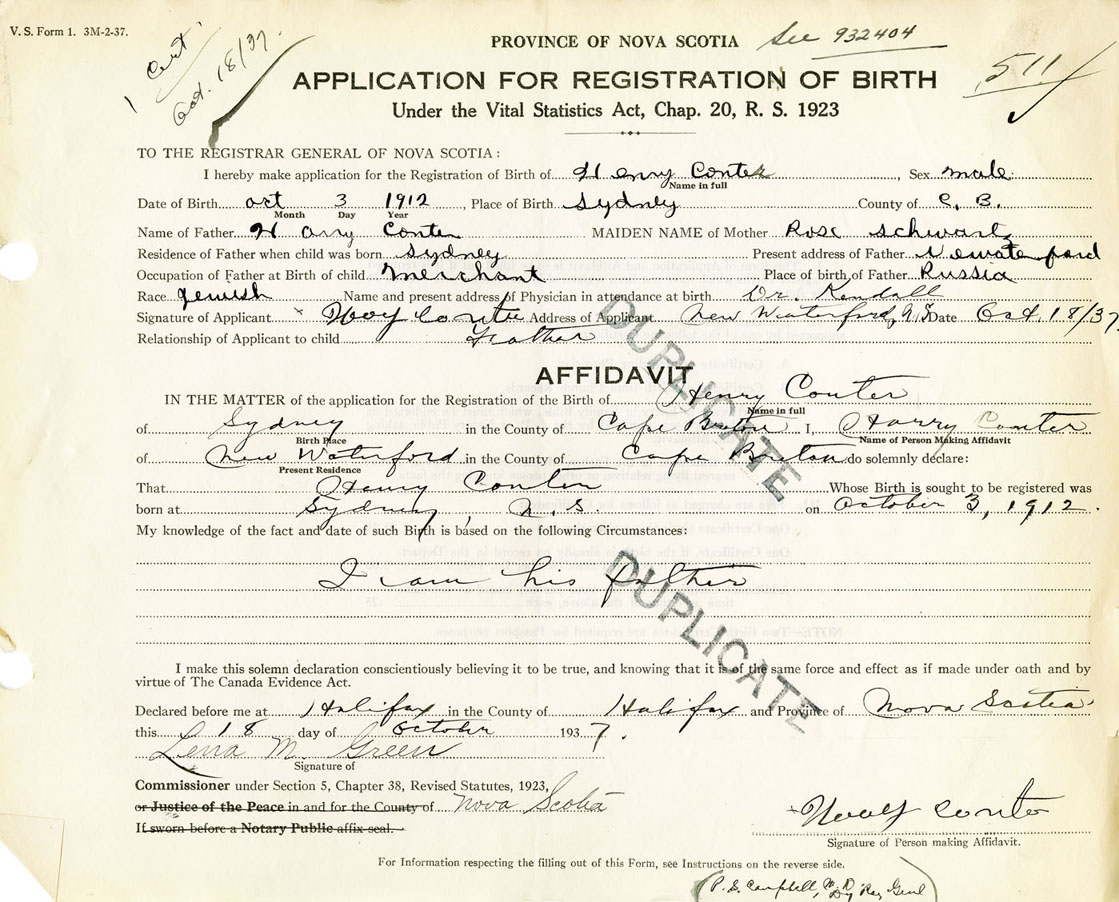 V. S. Form 1. 3M-2-37.
1 Cert
Oct. 18/37.
PROVINCE OF NOVA SCOTIA See 932404
511
APPLICATION FOR REGISTRATION OF BIRTH
Under the Vital Statistics Act, Chap. 20, R. S. 1923
TO THE REGISTRAR GENERAL OF NOVA SCOTIA:
I hereby make application for the Registration of Birth of Henry Conter, Sex male
Name in full
Date of Birth Oct 3 1912, Place of Birth Sydney County of C. B.
Month Day Year
Name of Father Harry Conter MAIDEN NAME of Mother Rose Schwartz
Residence of Father when child was born Sydney Present address of Father Newaterford
Occupation of Father at Birth of child Merchant Place of birth of Father Russia
Race Jewish Name and present address of Physician in attendance at birth Dr. Kendall
Signature of Applicant x Address of Applicant New Waterford, N.S Date Oct. 18/37
Relationship of Applicant to child Father
DUPLICATE
AFFIDAVIT
IN THE MATTER of the application for the Registration of the Birth of Henry Conter
Name in full
of Sydney in the County of Cape Breton I, Harry Conter
Birth Place Name of Person Making Affidavit
of New Waterford in the County of Cape Breton do solemnly declare:
Present Residence
That Henry Conter Whose Birth is sought to be registered was
born at Sydney, N. S. on October 3, 1912.
My knowledge of the fact and date of such Birth is based on the following Circumstances:
I am his father
DUPLICATE
I make this solemn declaration conscientiously believing it to be true, and knowing that it is of the same force and effect as if made under oath and by
virtue of The Canada Evidence Act.
Declared before me at Halifax in the County of Halifax and Province of Nova Scotia
this 18 day of October 1937.
Lena M. Green
Signature of
Commissioner under Section 5, Chapter 38, Revised Statutes, 1923,
or Justice of the Peace in and for the County of Nova Scotia
If sworn before a Notary Public affix seal.
Signature of Person making Affidavit.
For Information respecting the filling out of this Form, see Instructions on the reverse side.
(P. S. Campbell, M.D. Dy Reg Genl